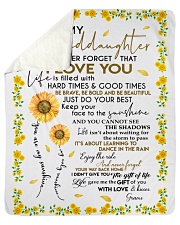 MY
Granddaughter
NEVER FORGET THAT
I LOVE YOU
life is filled with
HARD TIMES & GOOD TIMES
BE BRAVE, BE BOLD AND BE BEAUTIFUL
JUST DO YOUR BEST
Keep your
face to the sunshine
AND YOU CANNOT SEE
THE SHADOWS
Life isn't about waiting for
the storm to pass
IT'S ABOUT LEARNING TO
DANCE IN THE RAIN
Enjoy the ride
And never forget
YOUR WAY BACK HOME
I DIDN'T GIVE YOU The gift of life
Life gave me the GIFT OF you
WITH LOVE &
you are my sunshine